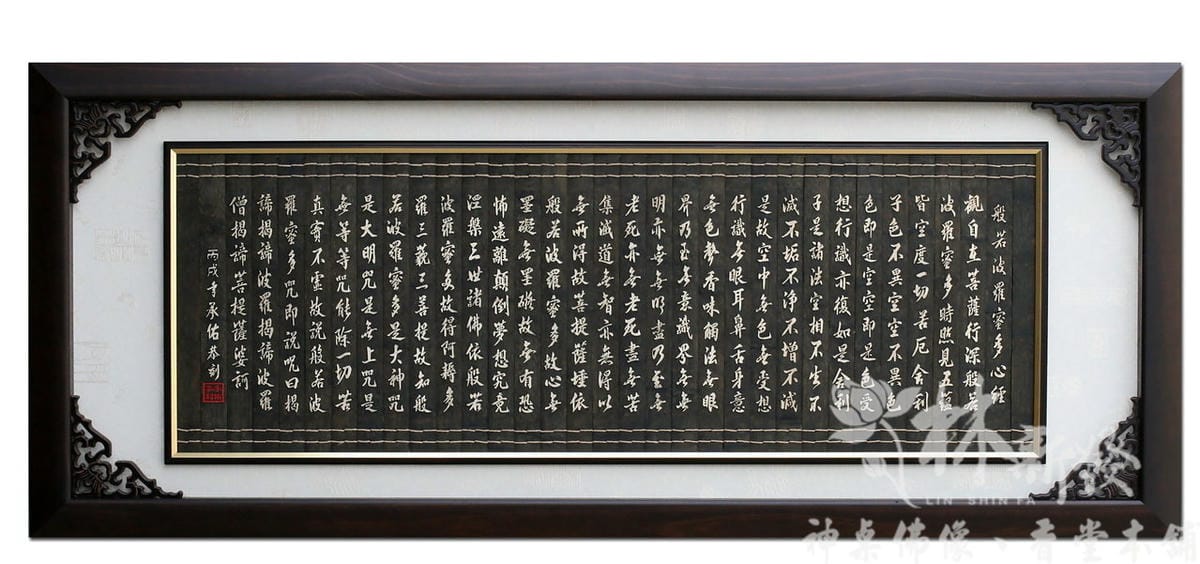 般若波羅蜜多心經
觀自在菩薩行深般若
波羅蜜多時照見五蘊
皆空度一切苦厄舍利
子色不異空空不異色
色即是空空即是色受
想行識亦復如是舍利
子是諸法空相不生不
滅不垢不淨不增不減
是故空中無色無受想
行識無眼耳鼻舌身意
無色聲香味觸法無眼
界乃至無意識界無無
明亦無無明盡乃至無
老死亦無老死盡無苦
集滅道無智亦無得以
無所得故菩提薩埵依
般若波羅蜜多故心無
罣礙無罣礙故無有恐
怖遠離顛倒夢想究竟
涅槃三世諸佛依般若
波羅蜜多故得阿耨多
羅三藐三菩提故知般
若波羅蜜多是大神咒
是大明咒是無上咒是
無等等咒能除一切苦
真實不虛故說般若波
羅蜜多咒即說咒曰揭
諦揭諦波羅揭諦波羅
僧揭諦菩提薩婆訶
丙戌李承佑恭刻
林新發
LIN SHIN FA
神桌佛像、香堂本舖